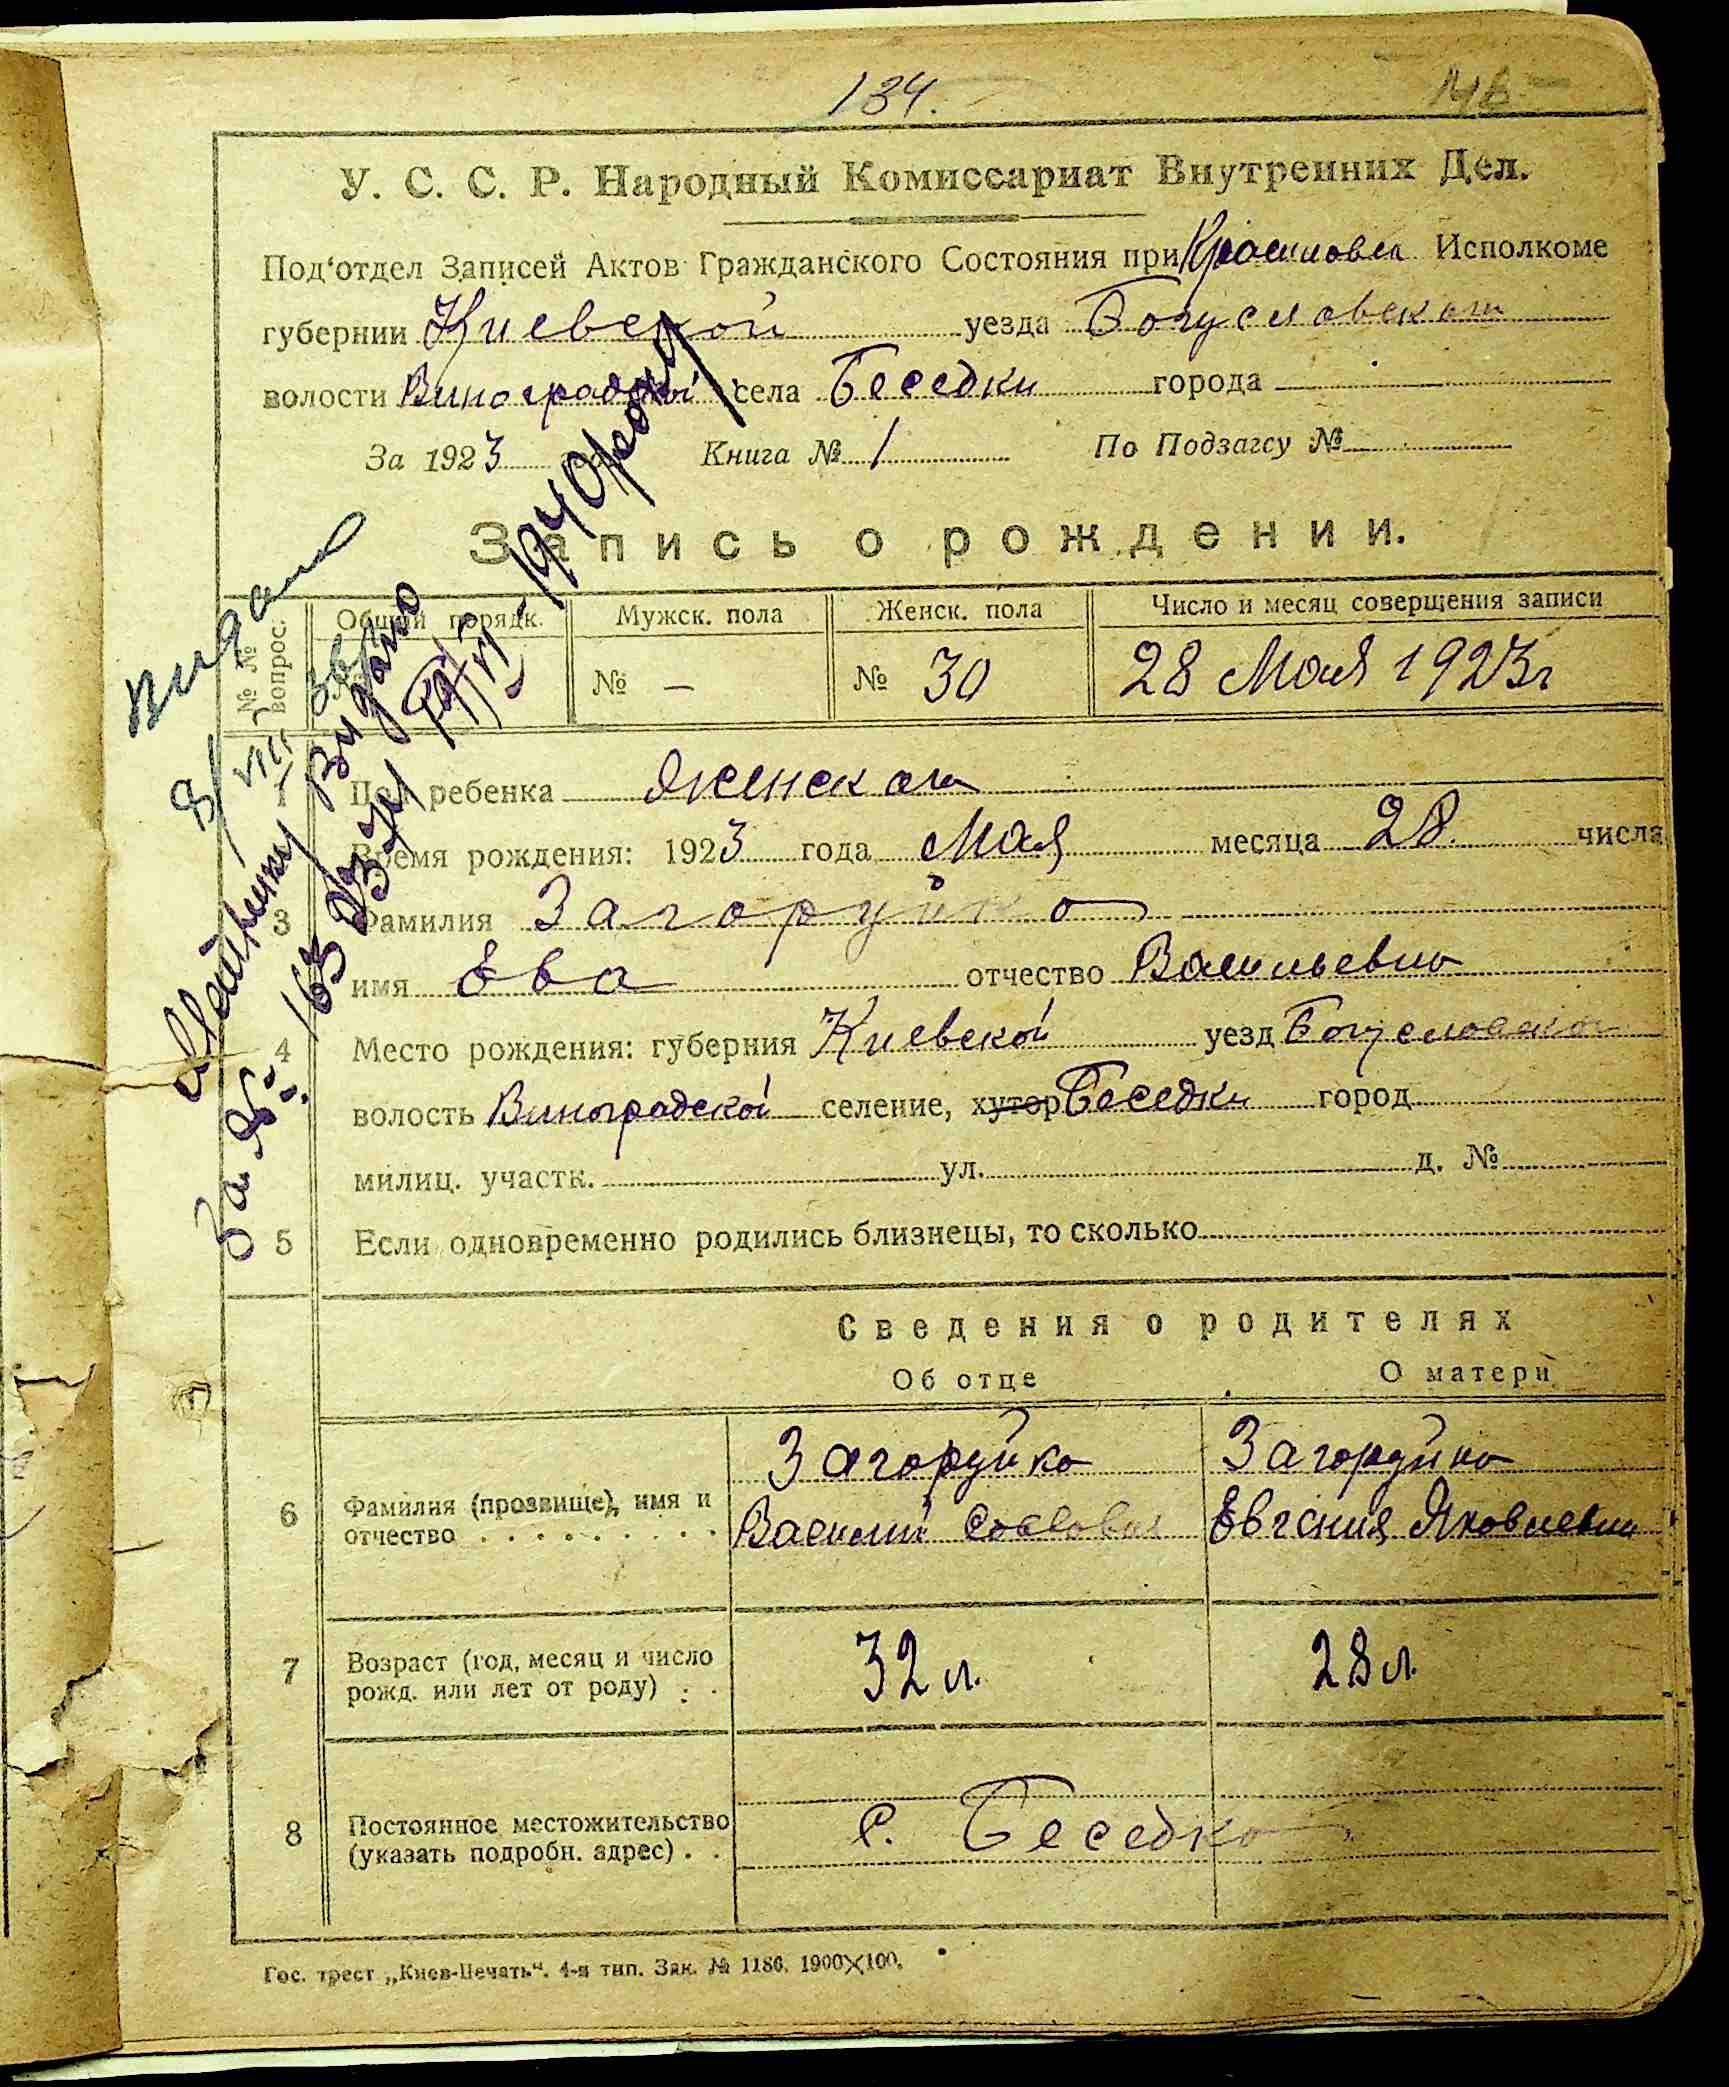 134.
У. С. С. Р. Народный Комиссариат Внутренних Дел.
Под'отдел Записей Актов Гражданского Состояния при Исполкоме
губернии Киевской уезда Богуславского
волости Виноградской села Беседки города
За 1923 года Книга № 1 По Подзагсу №
Запись о рождении.
№ № вопрос.
Общий порядк. Мужск. пола Женск. пола Число и месяц совершения записи
№ — № 30 28 Мая 1923 г
1 Пол ребенка Женского
Время рождения: 1923 года Мая месяца 28. числа
3 Фамилия Загоруйко
имя Ева отчество Васильевна
4 Место рождения: губерния Киевской уезд Богуславского
волость Виноградской селение, хутор Беседки город
милиц. участк. ул. д. №
5 Если одновременно родились близнецы, то сколько
Сведения о родителях
Об отце О матери
Загоруйко Загоруйко
6 Фамилия (прозвище), имя и отчество Василий Евгения Яковлевна
7 Возраст (год, месяц и число рожд. или лет от роду) 32 л. 28 л.
8 Постоянное местожительство (указать подробн. адрес) с. Беседка
Гос. трест „Киев-Печать“. 4-я тип. Зак. № 1186. 1900×100.
видано
Метрику видано
За № 163 1940 року